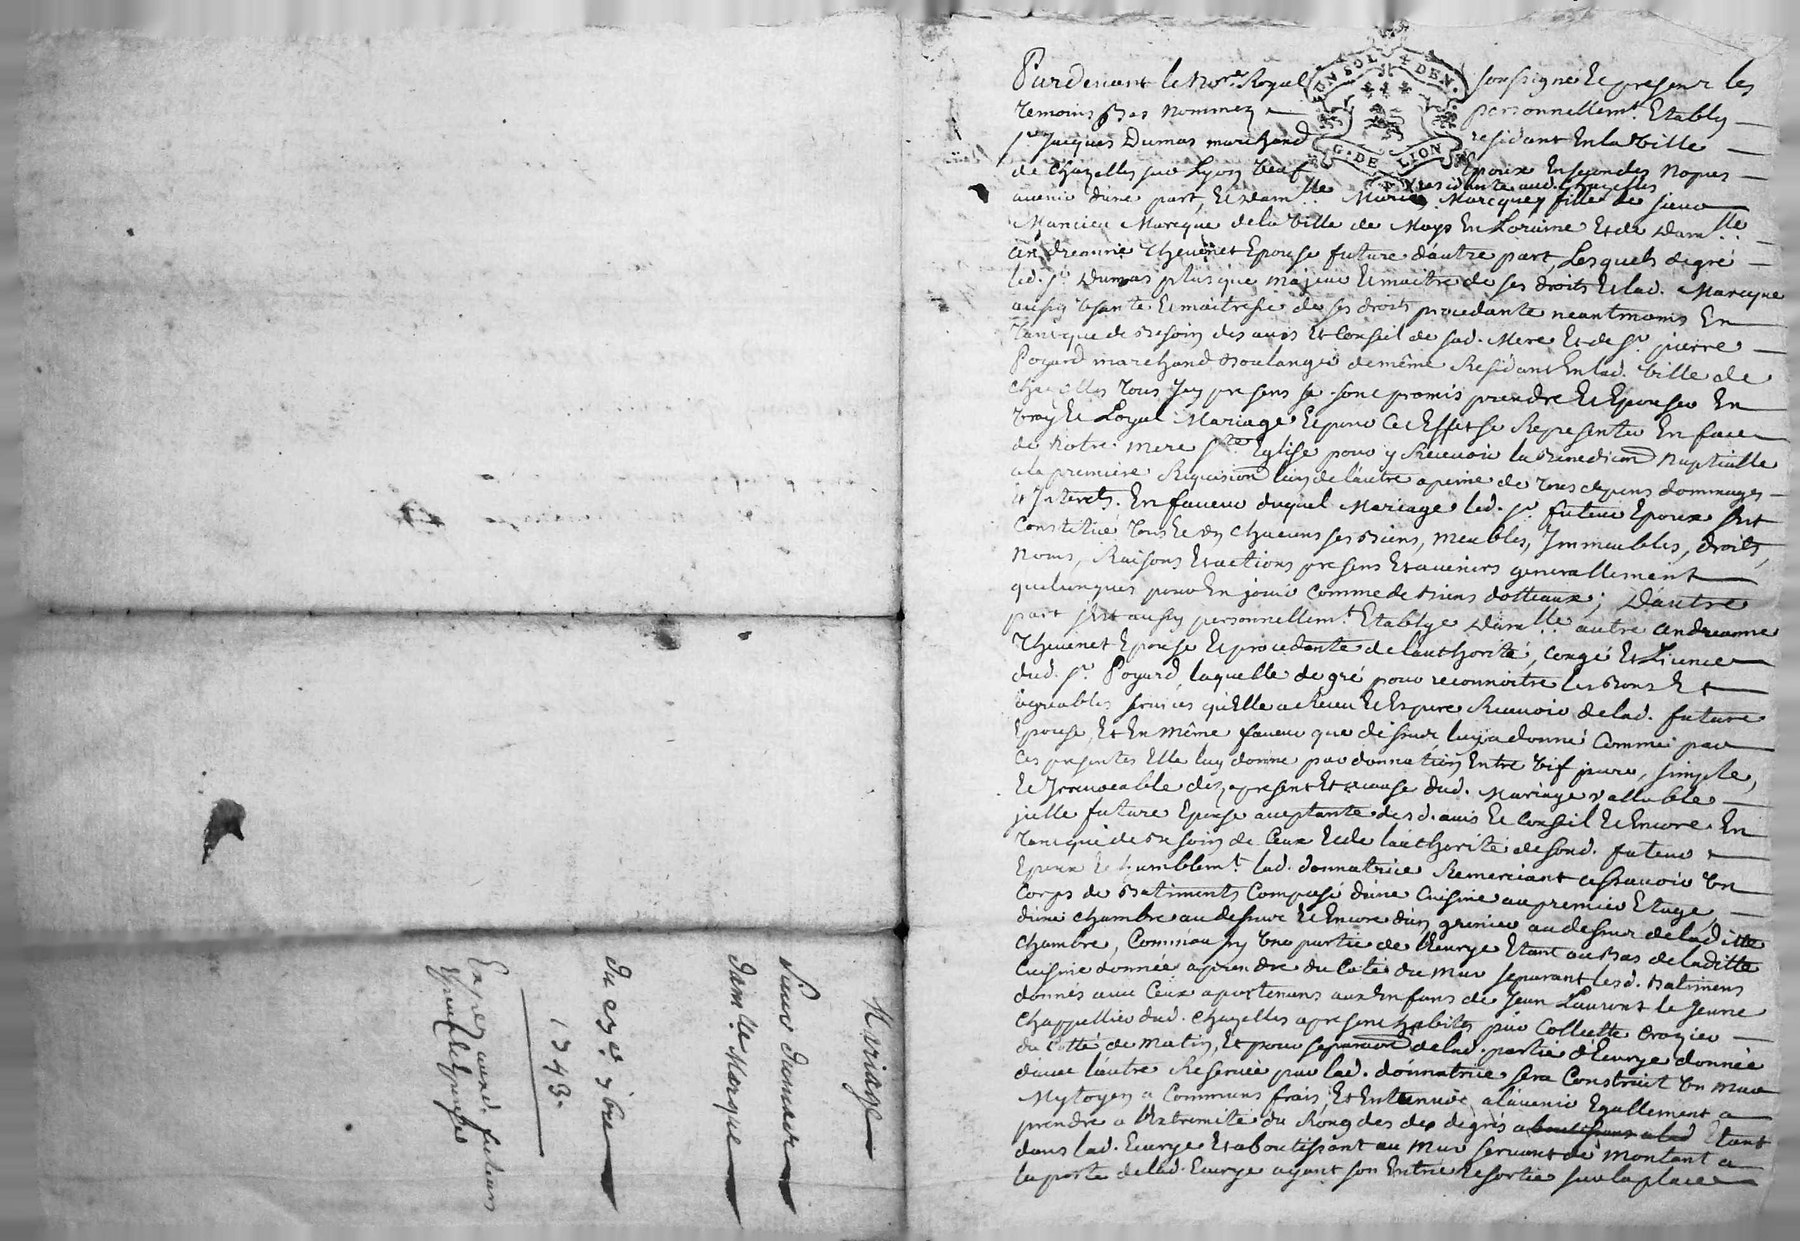 Pardevant le No.re Royal soussigné et present les
temoins bas nommez personnellem.t Etably
s.r Jacques Dumas marchand residant En la ville
de chazelles sur Lyon veuf Epoux En secondes nopces
avenir d'une part, et dam.lle Marie Marcque residante aud. chazelles fille de sieur
Mancieu Marcque de la ville de Moys En Loraine et de dam.lle
andreanne Thevenet Epouse future d'autre part, Lesquels de gré
led. s.r Dumas plus que majeur et maitre de ses droits et lad. Marcque
aussy usante et maitresse de ses droits procedante neantmoins En
tant que de besoin des avis et Conseil de sad. Mere et de s.r pierre
Poyard marchand boulanger de même Residant En lad. ville de
chazelles tous Icy presens se sont promis prendre et Epouser En
vray et Loyal Mariage et pour Cet Effet se Representer En face
de notre mere s.te Eglise pour y Recevoir la Benediction nuptialle
a la premiere Requisition l'un de l'autre a peine de tous depens dommages
et Interets. En faveur duquel Mariage led. s.r futeur Epoux s'est
Constitué tous et un chacuns ses biens, meubles, Immeubles, droits,
noms, Raisons et actions presens et avenirs generallement
quelconques pour En jouir comme de biens dotteaux; D'autre
part s'est aussy personnellem.t Etablye dam.lle autre andreanne
Thevenet Epouse et procedante de l'authorité, congé et Licence
dud. s.r Poyard, laquelle de gré pour reconnoitre les bons et
agreables services qu'Elle a Receu et Espere Recevoir de lad. future
Epouse, et En même faveur que dessus, luy a donné Comme par
Ces presentes Elle luy donne par donnation Entre vif pure, simple,
et Irrevocable dez a present et a cause dud. Mariage vallable
jcelle future Epouse acceptante desd. avis et Conseil et Encore En
tant que de besoin de Ceux et de l'authorité de sond. futeur
Epoux et humblem.t lad. donnatrice Remerciant asscavoir un
Corps de Batiments Composé d'une Cuisine au premier Etage,
d'une chambre au dessus et Encore d'un grenier au dessus de ladite
chambre, Comm'aussy une partie de l'Ecurye Etant au bas de laditte
Cuisine donnée a prendre du Coté du mur separant lesd. batimens
donnés avec Ceux apartenans aux Enfans de Jean Laurent le jeune
chappellier dud. chazelles a present habités par Collette crozier
du cotté de matin, Et pour separation de lad. partie d'Ecurye donnée
d'avec l'autre Reservée par lad. donnatrice sera Construit un mur
Mytoyen a Communs frais, et Entenuë a l'avenir Egallement a
prendre a l'Extremité du Rang des degrés Etant
dans lad. Ecurye et aboutissant au mur servant de montant a
la porte de lad. Ecurye ayant son Entrée et sortie sur la place
UN SOL 4 DEN.
G. DE LION
Mariage
Sieur dumas
dam.lle Marcque
du 9bre
1743.